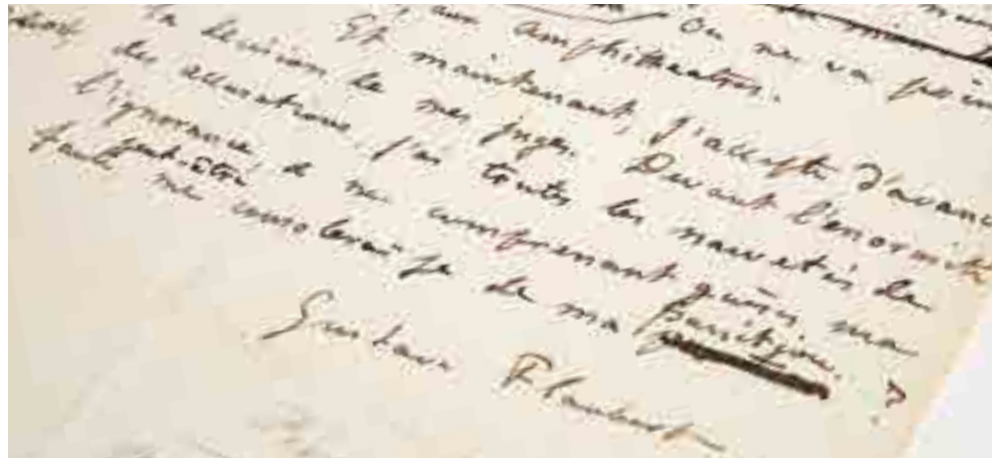 On ne va
aux amphithéatres.
Et maintenant, j'accepte d'avance
la décision de mes juges. Devant l'énormité
des accusations, j'ai toutes les naivetés de
l'ignorance, & ne comprenant guères ma
peut-être
faute me consolerai-je de ma punition. ?
Gustave Flaubert